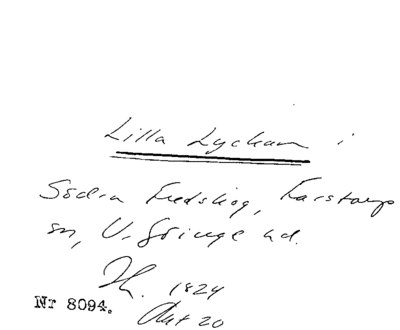 Lilla Lyckan i
Södra Fredskog, Farstorps
sn, V. Göinge hd.
Hh. 1824
Nr 8094.
Akt 20